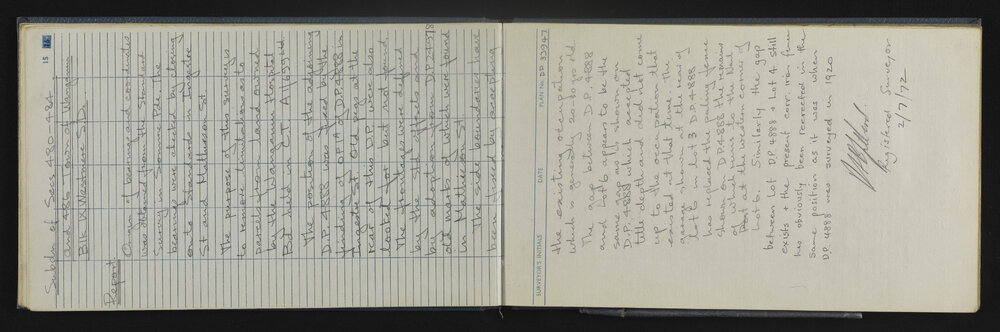 15
Subdn of Secs 480-484
and 486 Town of Wanganui
Blk IX Westmere S.D.
Report
Origin of bearings and coordinates
was obtained from the Standard
survey in Somme Pde. The
bearings were checked by closing
onto Standards in Ingestre
St and Mathieson St
The purpose of this survey
is to remove limitations as to
parcels on land owned
by the Wanganui Hospital
Bd held in C.T. A1/699
The position of the adjoining
D.P. 4888 was fixed by the
finding of O.P. I A D.P. 4888 in
Ingestre St. Old pegs at the
rear of this D.P. were also
looked for but not found.
The frontages were defined
by the offsets found
by adoption from D.P. 24378
old marks of which were found
in Mathieson St.
The side boundaries have
been fixed by accepting
SURVEYOR'S INITIALS DATE PLAN No. DP 33947
the existing occupation
which is generally 20-30 yo old.
The gap between D.P. 4888
and Lot 6 appears to be the
same gap as shown on
D.P. 4888 which accepted
title depth and did not come
up to the occupation that
existed at that time. The
garage shown at the rear of
Lot 6 in Lot 3 D.P. 4888
has replaced the paling fence
shown on DP 4888 the remains
of which is the Nail
Post at the western corner of
Lot 6. Similarly the gap
between Lot D.P. 4888 & Lot 4 still
exists & the present corr. iron fence
has obviously been reerected in the
same position as it was when
D.P. 4888 was surveyed in 1920
Registered Surveyor
2/7/72